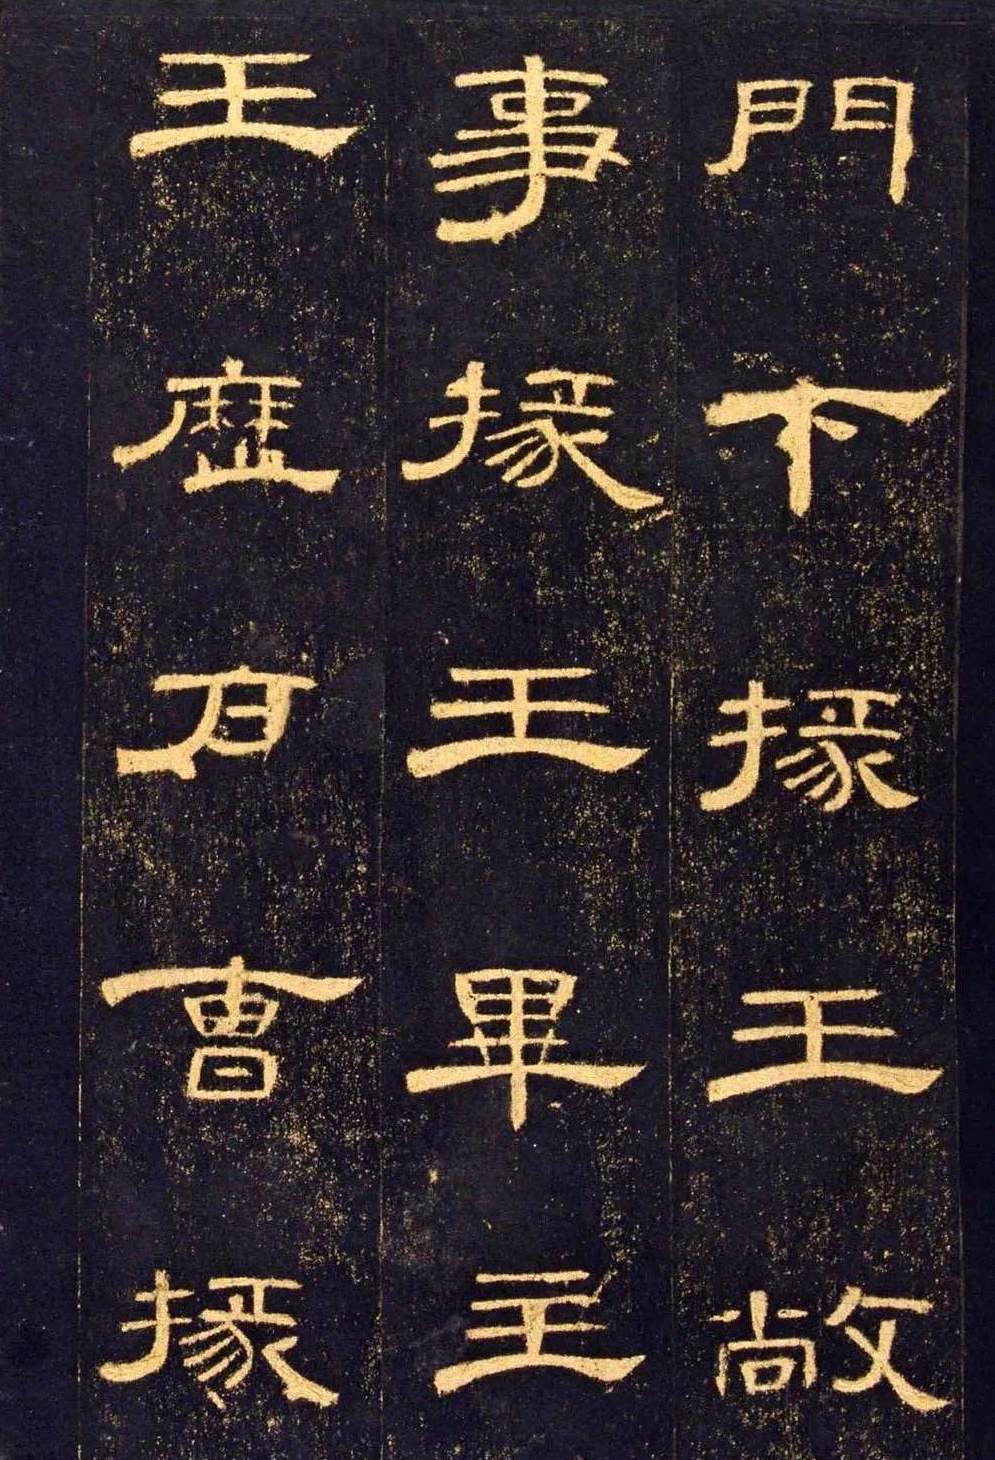 門下掾王敞
事掾王畢主
王歷戶曹掾